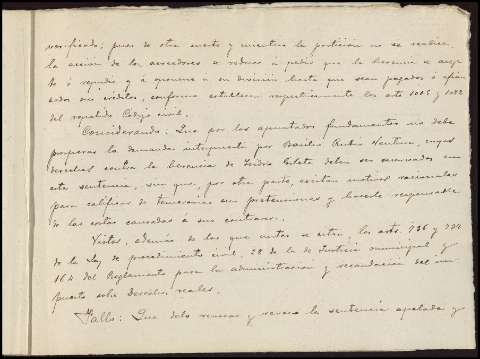 verificada; pues de otra suerte y mientras la partición no se realice,
la acción de los acreedores se reduce á pedir que la herencia se acep-
te ó repudie y á oponerse a su división hasta que sean pagados ó afian-
zados sus créditos, conforme establecen respectivamente los arts 1005 y 1082
del repetido Código civil.
Considerando: Que por los apuntados fundamentos no debe
prosperar la demanda interpuesta por Ventura, cuyos
derechos contra la herencia de Isidro deben ser reservados en
esta sentencia, sin que, por otra parte, existan motivos racionales
para calificar de temerarias sus pretensiones y hacerle responsable
de las costas causadas á su contrario.
Vistos, además de los que antes se citan, los arts. 736 y
de la Ley de procedimiento civil, 28 de la de Justicia municipal y
164 del Reglamento para la administración y recaudación del im-
puesto sobre derechos reales.
Fallo: Que debo revocar y revoco la sentencia apelada y